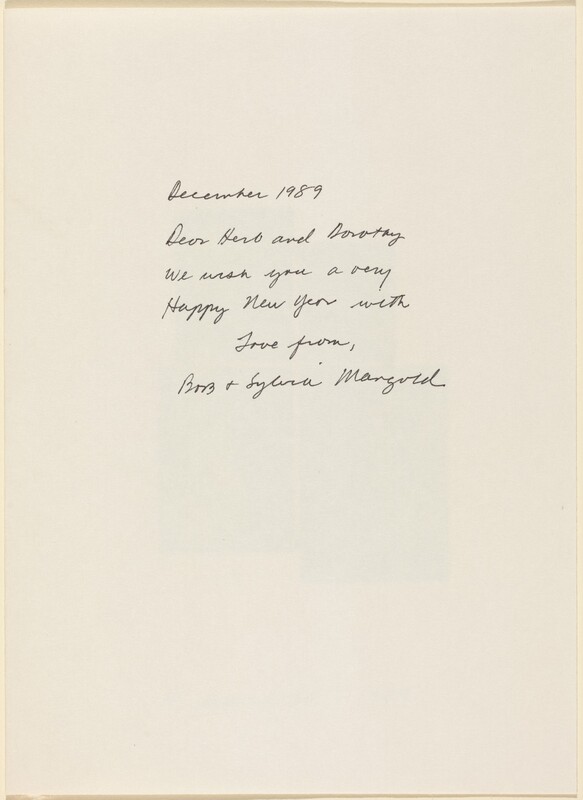 December 1989
Dear Herb and Dorothy
We wish you a very
Happy New Year with
Love from,
Bob + Sylvia Mangold